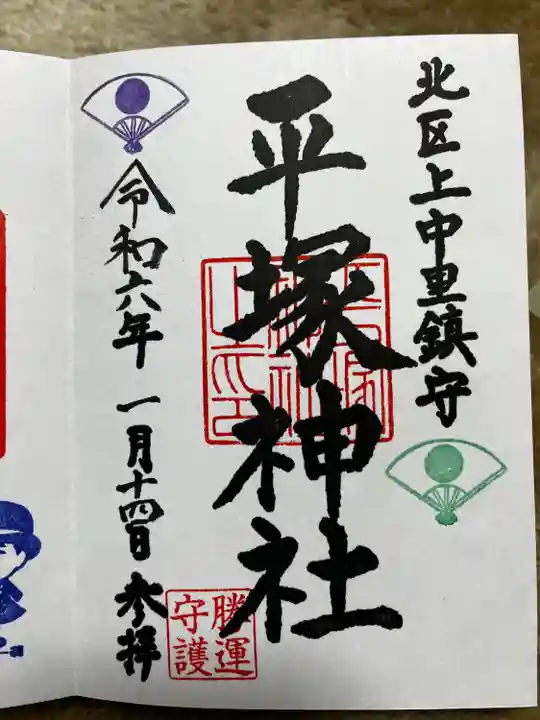 北区上中里鎮守
平塚神社
平塚神社之印
勝運守護
令和六年 一月十四日 参拝